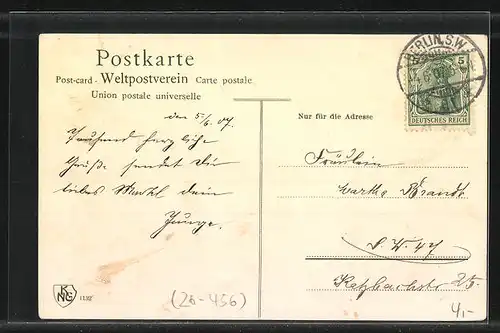 Postkarte
Post-card - Weltpostverein Carte postale
Union postale universelle
BERLIN, S.W.
5
DEUTSCHES REICH
den 5/6. 07.
Nur für die Adresse
Tausend herzliche
Grüße sendet Dir
liebes dein
Junge.
Fräulein
Martha Brandt
S. W. 47
Katzbachstr. 25
K
NG
(20-456)
4,-